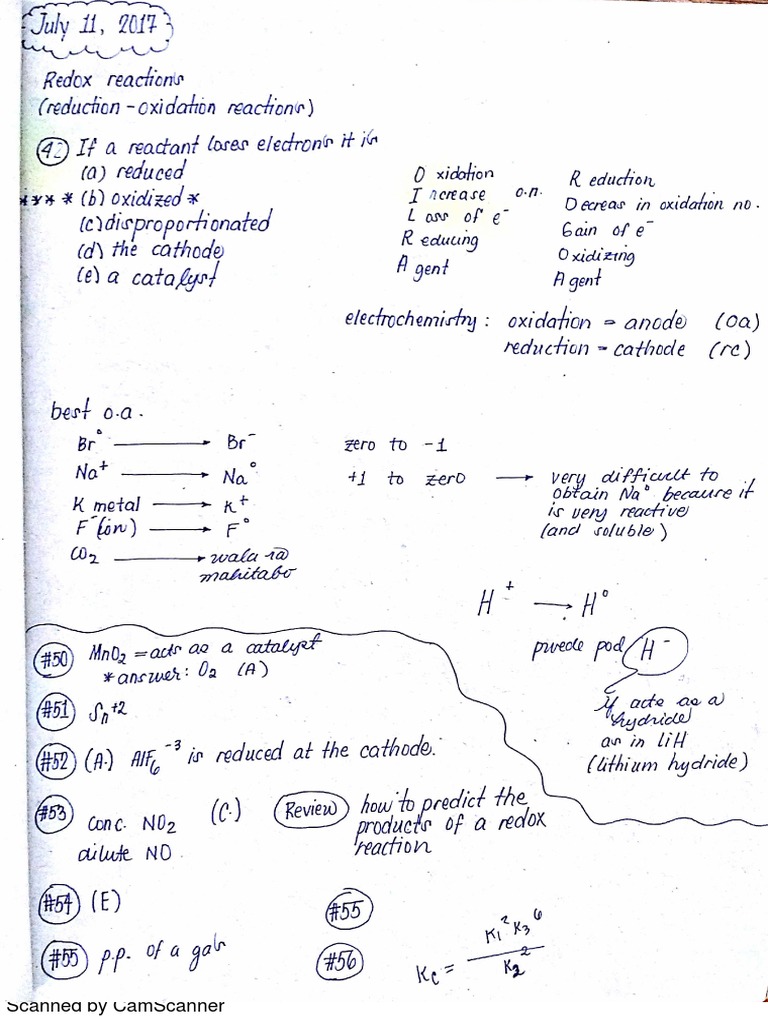 July 11, 2017
Redox reactions
(reduction - oxidation reactions)
42 If a reactant loses electrons it is
(a) reduced
*** * (b) oxidized *
(c) disproportionated
(d) the cathode
(e) a catalyst
Oxidation
Increase o.n.
Loss of e⁻
Reducing
Agent
Reduction
Decreas in oxidation no.
Gain of e⁻
Oxidizing
Agent
electrochemistry : oxidation = anode (oa)
reduction - cathode (rc)
best o.a.
Br° → Br⁻ zero to -1
Na⁺ → Na° +1 to zero → very difficult to
obtain Na° because it
is very reactive
(and soluble)
K metal → K⁺
F⁻(ion) → F°
CO₂ → wala na
mahitabo
H⁺ → H°
pwede pod H⁻
if acts as a
hydride
as in LiH
(lithium hydride)
#50 MnO₂ = acts as a catalyst
* answer: O₂ (A)
#51 Sn⁺²
#52 (A.) AlF₆⁻³ is reduced at the cathode.
#53 conc. NO₂ (C.)
dilute NO
Review how to predict the
products of a redox
reaction
#54 (E)
#55
#55 p.p. of a gas
#56 Kc = K₁² K₃⁶ / K₂²
Scanned by CamScanner